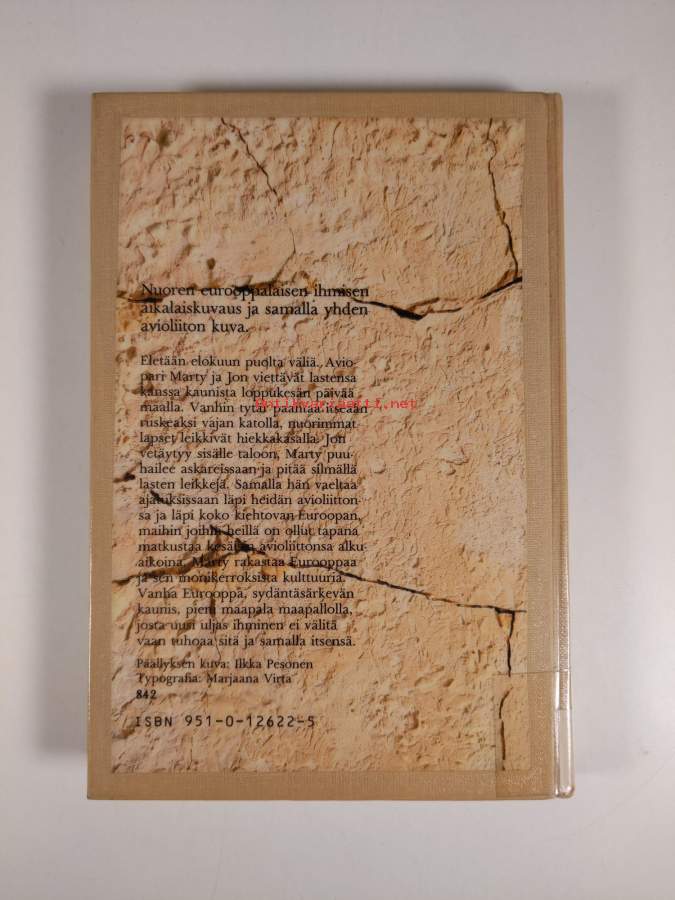 Nuoren eurooppalaisen ihmisen
aikalaiskuvaus ja samalla yhden
avioliiton kuva.
Eletään elokuun puolta väliä. Avio-
pari Marty ja Jon viettävät lastensa
kanssa kaunista loppukesän päivää
maalla. Vanhin tytär paahtaa itseään
antikvariaatti.net
ruskeaksi vajan katolla, nuorimmat
lapset leikkivät hiekkakasalla. Jon
vetäytyy sisälle taloon, Marty puu-
hailee askareissaan ja pitää silmällä
lasten leikkejä. Samalla hän vaeltaa
ajatuksissaan läpi heidän avioliitton-
sa ja läpi koko kiehtovan Euroopan,
maihin joihin heillä on ollut tapana
matkustaa kesäisin avioliittonsa alku-
aikoina. Marty rakastaa Eurooppaa
ja sen monikerroksista kulttuuria.
Vanha Eurooppa, sydäntäsärkevän
kaunis, pieni maapala maapallolla,
josta uusi uljas ihminen ei välitä
vaan tuhoaa sitä ja samalla itsensä.
Päällyksen kuva: Ilkka Pesonen
Typografia: Marjaana Virta
842
ISBN 951-0-12622-5